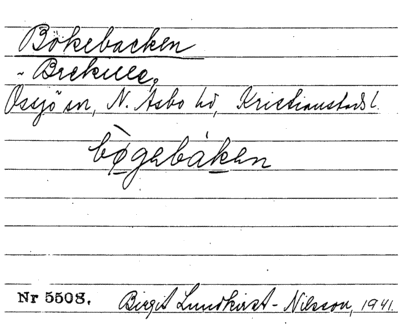 Bökebacken
Brekille,
Össjö sn, N. Åsbo hd, Kristianstads l.
bøgebáken
Nr 5508. Birgit Lundkvist-Nilsson, 1941.